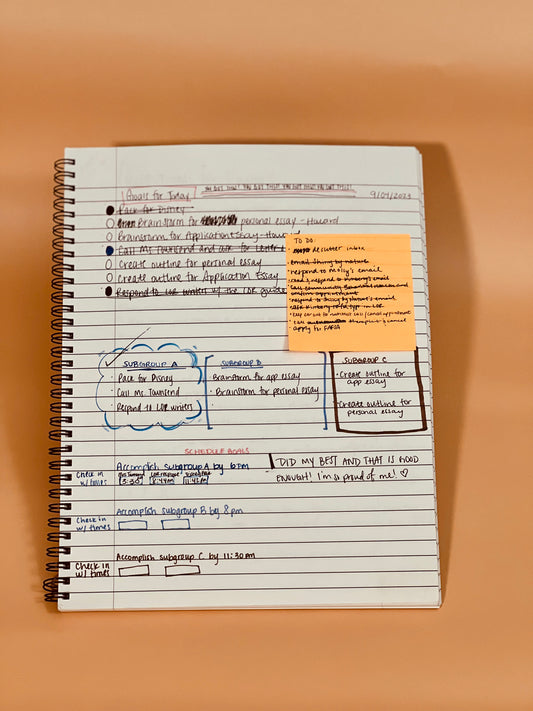 Goals for Today
YOU GOT THIS! YOU GOT THIS! YOU GOT THIS! YOU GOT THIS!
9/04/2023
Pack for Disney
Brainstorm for personal essay - Howard
Brainstorm for Application Essay - Howard
Call Ms Townsend and ask for letter
Create outline for personal essay
Create outline for Application Essay
Respond to LOR writers w/ the LOR guide
TO DO:
declutter inbox
email Shiny by nature
respond to Molly's email
respond to email
confirm appointment
respond to Shiny by Nature's email
apply for FAFSA
SUBGROUP A
Pack for Disney
Call Ms. Townsend
Respond to LOR writers
SUBGROUP B
Brainstorm for app essay
Brainstorm for personal essay
SUBGROUP C
Create outline for
app essay
Create outline for
personal essay
SCHEDULE GOALS
Accomplish Subgroup A by 6pm
Check in
w/ times
DID MY BEST AND THAT IS GOOD
ENOUGH! I'm so proud of me! ♡
Accomplish Subgroup B by 8pm
Check in
w/ times
Accomplish Subgroup C by 11:30pm
Check in
w/ times